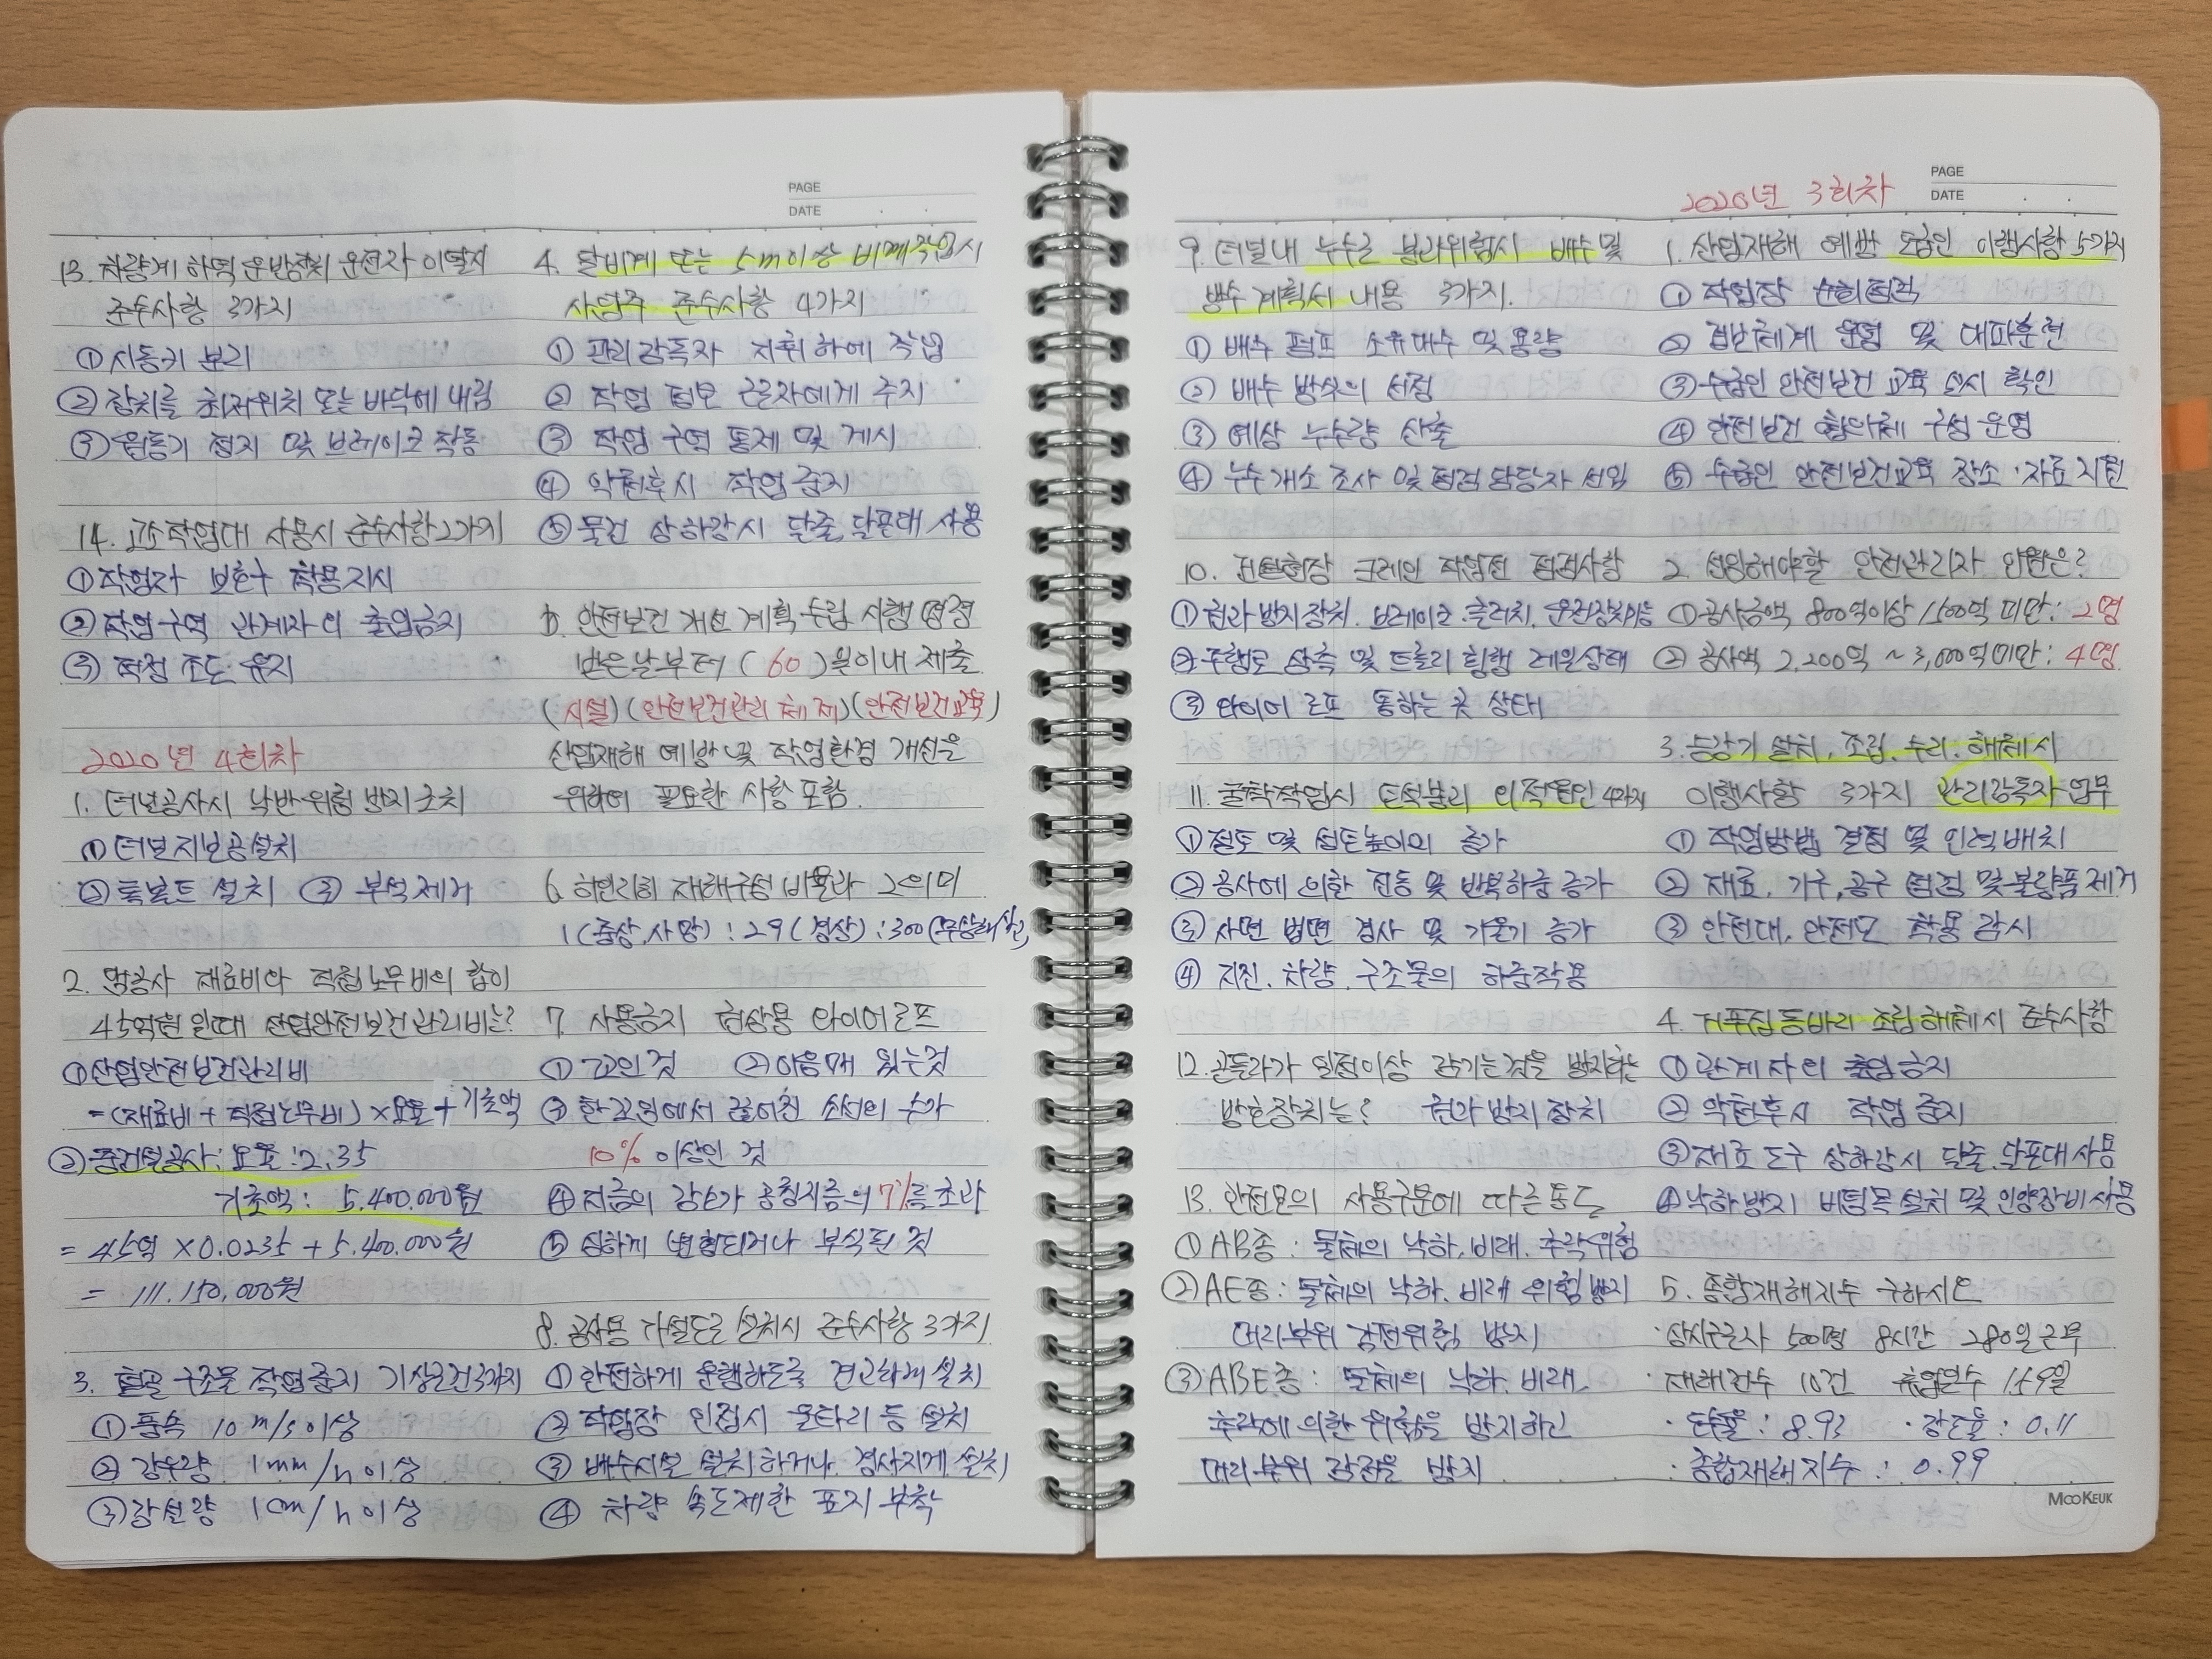 PAGE
DATE
13. 차량계 하역 운반장치 운전자 이탈시
준수사항 3가지
① 시동키 분리
② 장치를 최저위치 또는 바닥에 내림
③ 원동기 정지 및 브레이크 작동
14. 고소작업대 사용시 준수사항 2가지
① 작업자 보호구 착용지시
② 작업구역 관계자 외 출입금지
③ 적정 조도 유지
2020년 4회차
1. 터널공사시 낙반위험 방지조치
① 터널지보공설치
② 록볼트 설치 ③ 부석제거
2. 공사 재료비와 직접노무비의 합이
45억원 일때 산업안전보건관리비는?
① 산업안전보건관리비
=(재료비 + 직접노무비) × 요율 + 기초액
② 중건설공사: 요율: 2.35
기초액: 5.400.000원
= 45억 × 0.0235 + 5.400.000원
= 111.150.000원
3. 철골 구조물 작업중지 기상조건 3가지
① 풍속 10 m/s 이상
② 강우량 1mm/h 이상
③ 강설량 1cm/h 이상
4. 달비계 또는 5m이상 비계작업시
사업주 준수사항 4가지
① 관리감독자 지휘하에 작업
② 작업 정보 근로자에게 주지
③ 작업 구역 통제 및 게시
④ 악천후시 작업중지
⑤ 물건 상하강시 달줄, 달포대 사용
5. 안전보건 개선 계획 수립 시행 명령
받은날부터 ( 60 )일이내 제출
(시설)(안전보건관리 체제)(안전보건교육)
산업재해 예방 및 작업환경 개선을
위하여 필요한 사항 포함.
6. 하인리히 재해구성 비율과 그의미
1(중상,사망) : 29(경상) : 300(무상해사고)
7. 사용금지 권상용 와이어로프
① 꼬인것 ② 이음매 있는것
③ 한꼬임에서 끊어진 소선의 수가
10% 이상인 것
④ 지름의 감소가 공칭지름의 7%를 초과
⑤ 심하게 변형되거나 부식된 것
8. 공사용 가설도로 설치시 준수사항 3가지
① 안전하게 운행하도록 견고하게 설치
② 작업장 인접시 울타리 등 설치
③ 배수시설 설치하거나 경사지게 설치
④ 차량 속도제한 표지 부착
PAGE
DATE
2020년 3회차
9. 터널내 누수로 붕괴위험시 배수 및
방수 계획서 내용 3가지.
① 배수 펌프 소유대수 및 용량
② 배수 방식의 선정
③ 예상 누수량 산출
④ 누수개소 조사 및 점검 담당자 선임
10. 건설현장 크레인 작업전 점검사항
① 권과방지장치. 브레이크. 클러치. 운전장치기능
② 주행로 상측 및 트롤리 횡행 레일상태
③ 와이어로프 통하는 곳 상태
11. 굴착작업시 토석붕괴 외적원인 4가지
① 절토 및 성토높이의 증가
② 공사에 의한 진동 및 반복하중 증가
③ 사면 법면 경사 및 기울기 증가
④ 지진. 차량. 구조물의 하중작용
12. 곤돌라가 일정이상 감기는것을 방지하는
방호장치는? 권과방지장치
13. 안전모의 사용구분에 따른용도
① AB종 : 물체의 낙하, 비래. 추락위험
② AE종 : 물체의 낙하. 비래 위험방지
머리부위 감전위험 방지
③ ABE종 : 물체의 낙하. 비래.
추락에 의한 위험을 방지하고
머리부위 감전을 방지
1. 산업재해 예방 도급인 이행사항 5가지
① 작업장 순회점검
② 경보체계 운영 및 대피훈련
③ 수급인 안전보건 교육 실시 확인
④ 안전보건 협의체 구성 운영
⑤ 수급인 안전보건교육 장소·자료지원
2. 선임해야할 안전관리자 인원은?
① 공사금액 800억이상 1500억 미만: 2명
② 공사액 2,200억 ~ 3,000억미만: 4명
3. 승강기 설치. 조립. 수리. 해체시
이행사항 3가지 관리감독자 업무
① 작업방법 결정 및 인력배치
② 재료. 기구, 공구 점검 및 불량품 제거
③ 안전대, 안전모 착용 감시
4. 거푸집동바리 조립해체시 준수사항
① 관계자외 출입금지
② 악천후시 작업중지
③ 재료 도구 상하강시 달줄. 달포대사용
④ 낙하방지 버팀목설치 및 인양장비사용
5. 종합재해지수 구하시오
·상시근로자 500명 8시간 280일근무
·재해건수 10건 휴업일수 159일
·도수율 : 8.93 ·강도율 : 0.11
·종합재해지수 : 0.99
MOOKEUK